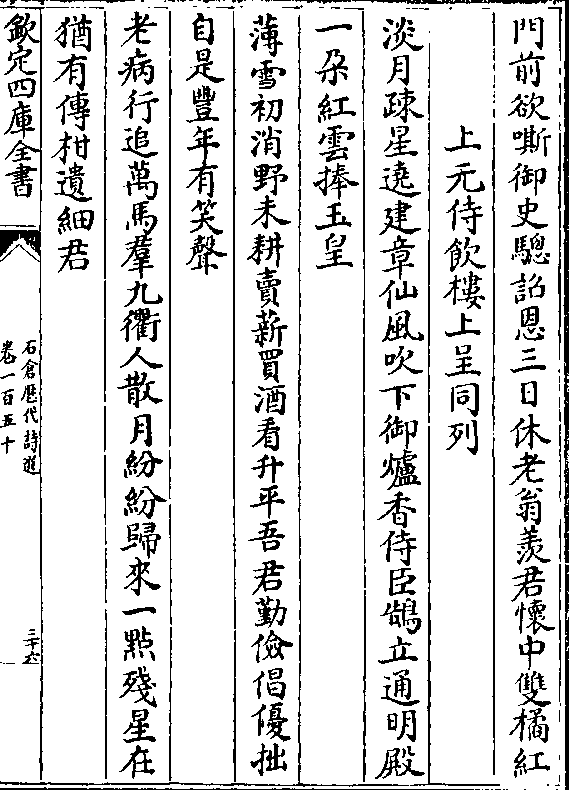 門前欲嘶御史驄詔恩三日休老翁羨君懷中雙橘紅
上元侍飲樓上呈同列
淡月疎星遶建章仙風吹下御爐香侍臣鵠立通明殿
一朶紅雲捧玉皇
薄雪初消野未耕賣薪買酒看升平吾君勤儉倡優拙
自是豐年有笑聲
老病行追萬馬羣九衢人散月紛紛歸來一點殘星在
猶有傳柑遺細君
欽定四庫全書
石倉歷代詩選
卷一百五十
三十六